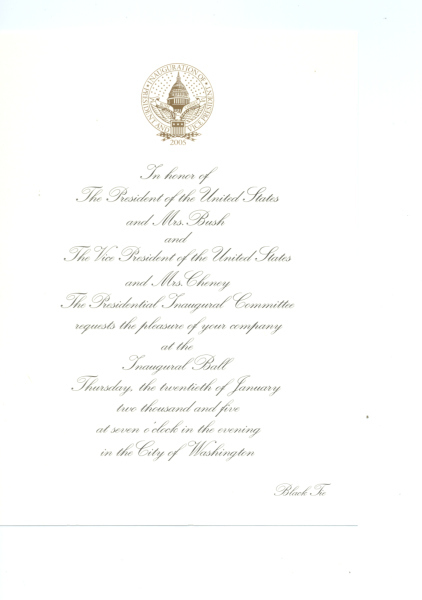 INAUGURATION OF
PRESIDENT AND VICE PRESIDENT
2005
In honor of
The President of the United States
and Mrs. Bush
and
The Vice President of the United States
and Mrs. Cheney
The Presidential Inaugural Committee
requests the pleasure of your company
at the
Inaugural Ball
Thursday, the twentieth of January
two thousand and five
at seven o'clock in the evening
in the City of Washington
Black Tie